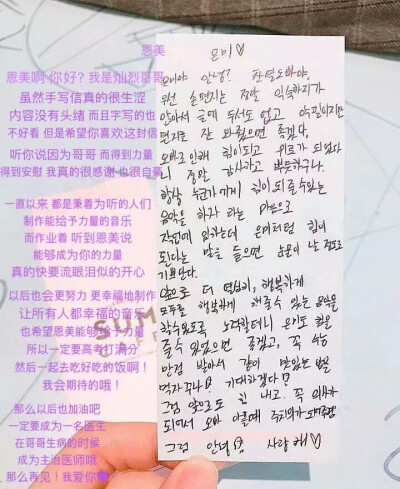 恩美
恩美啊 你好? 我是灿烈哥哥
虽然手写信真的很生涩
内容没有头绪 而且字写的也
不好看 但是希望你喜欢这封信
听你说因为哥哥 而得到力量
得到安慰 我真的很感谢 也很自豪
一直以来 都是秉着为听的人们
制作能给予力量的音乐
而作业着 听到恩美说
能够成为你的力量
真的快要流眼泪似的开心
以后也会更努力 更幸福地制作
让所有人都幸福的音乐
也希望恩美能够给予力量
所以一定要高考打满分
然后一起去吃好吃的饭啊!
我会期待的哦!
那么以后也加油吧
一定要成为一名医生
在哥哥生病的时候
成为主治医师哦
那么再见!我爱你💜
은미♡
은미야 안녕? 찬열오빠야,
원건 손편지는 정말 익숙하지가
않아서 글에 두서도 없고 악필이지만
편지로 잘 봐줬으면 좋겠다,
오빠로 인해 힘이되고 위로가 되었다
니 정말 감사하고 뿌듯하구나.
항상 누군가에게 힘이 되줄수있는
음악을 하자 라는 마음으로
작업에 임하는데 은미처럼 힘이
된다는 말을 들으면 눈물이 날 정도로
기쁘단다.
앞으로 더 열심히, 행복하게
모두를 행복하게 해줄수 있는 음악을
할수있도록 노력할테니 은미도 힘을
줄수 있었으면 좋겠고, 꼭 수능
만점 받아서 같이 맛있는 밥을
먹자꾸나! 기대하겠다!
그럼 앞으로도 힘 내고. 꼭 의사가
되어서 오빠 아플때 주치의가 되어주렴
그럼 안녕! 사랑해♡
SUM